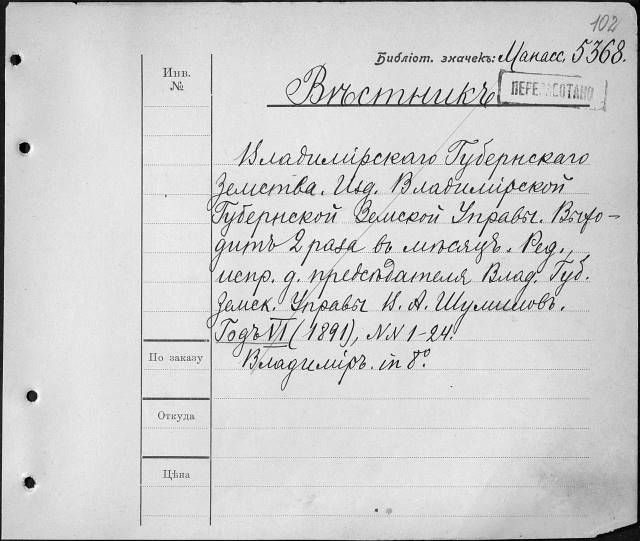 102
Библіот. значекъ: Манасс. 5368.
Инв.
№
Вѣстникъ
ПЕРЕРАБОТАНО
Владимірскаго Губернскаго
Земства. Изд. Владимірской
Губернской Земской Управы. Выхо-
дитъ 2 раза въ мѣсяцъ. Ред.
испр. д. предсѣдателя Влад. Губ.
Земск. Управы В. А. Шумиловъ.
Годъ VI (1891), NN 1-24.
Владиміръ. in 8°.
По заказу
Откуда
Цѣна